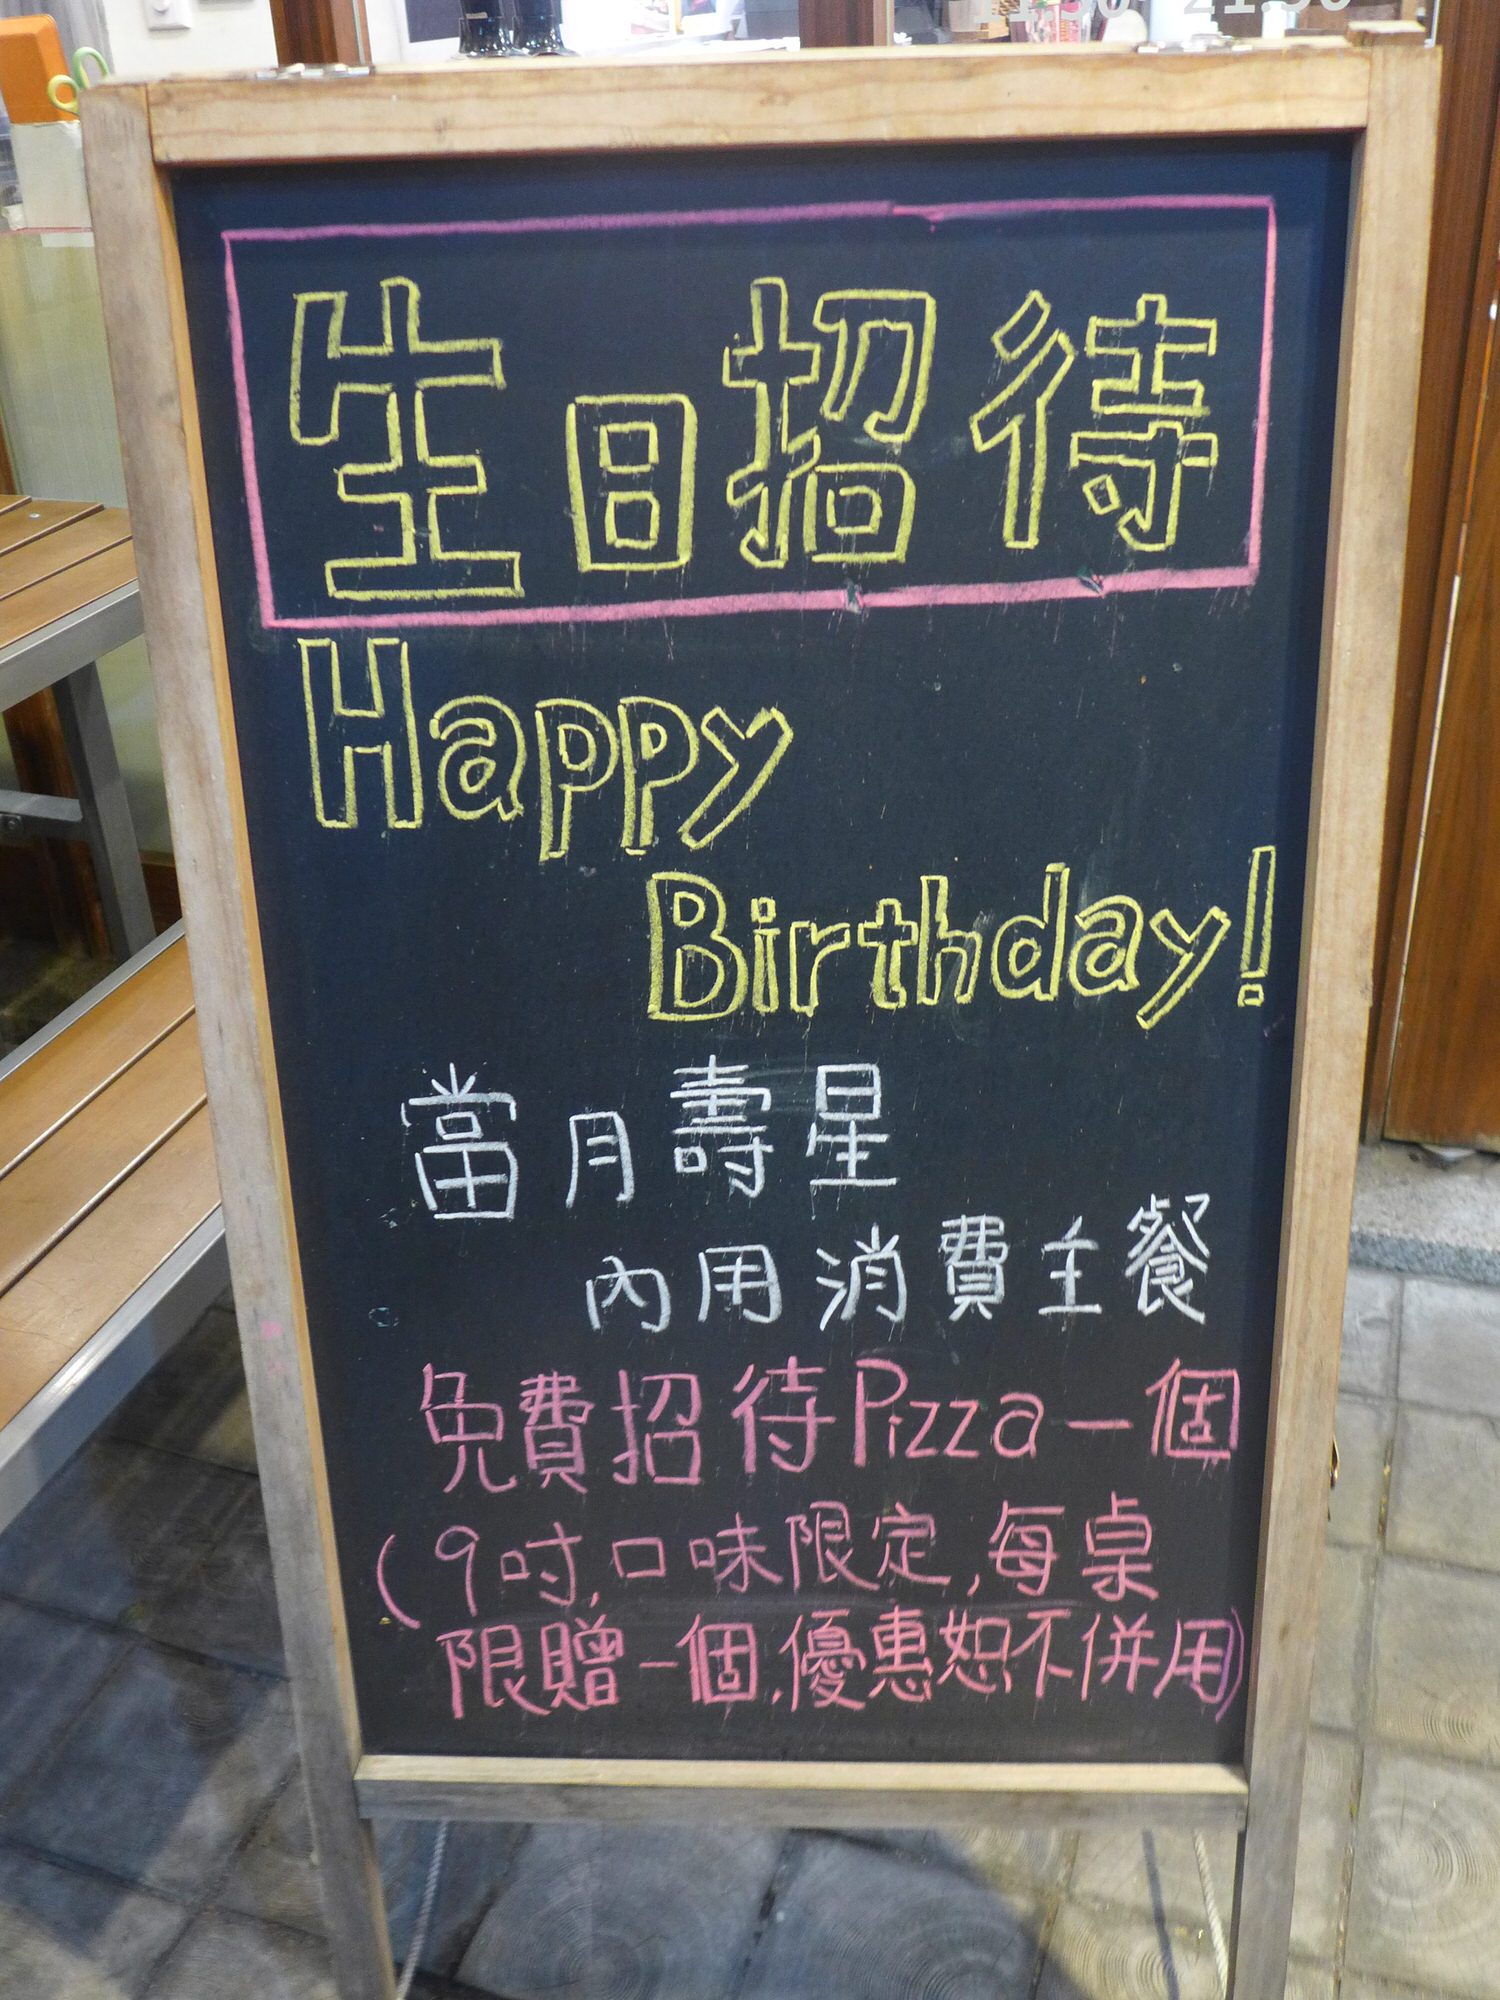 生日招待
Happy
Birthday!
當月壽星
內用消費主餐
免費招待Pizza一個
(9吋,口味限定,每桌
限贈一個,優惠恕不併用)